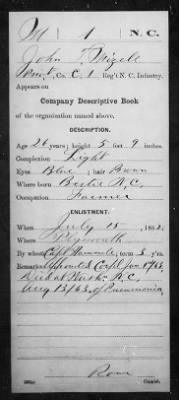 M | 1 | N. C.
John Mizell
, Co. C, 1 Reg't N. C. Infantry.
Appears on
Company Descriptive Book
of the organization named above.
DESCRIPTION.
Age 26 years; height 5 feet 9 inches.
Complexion Light
Eyes Blue; hair Brown
Where born Bertie N. C.
Occupation Farmer
ENLISTMENT.
When July 15, 1862.
Where Plymouth
By whom Capt. ; term 3 y'rs.
Remarks: Appointed Corp'l Jan 1/63.
Died at N. C.
Aug 13/63 of Pneumonia.
Copyist.